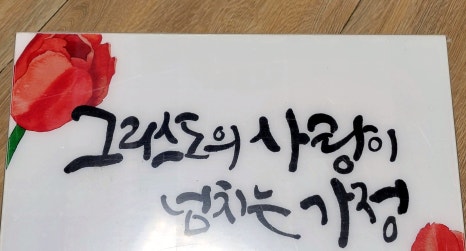 그리스도의 사랑이
넘치는 가정